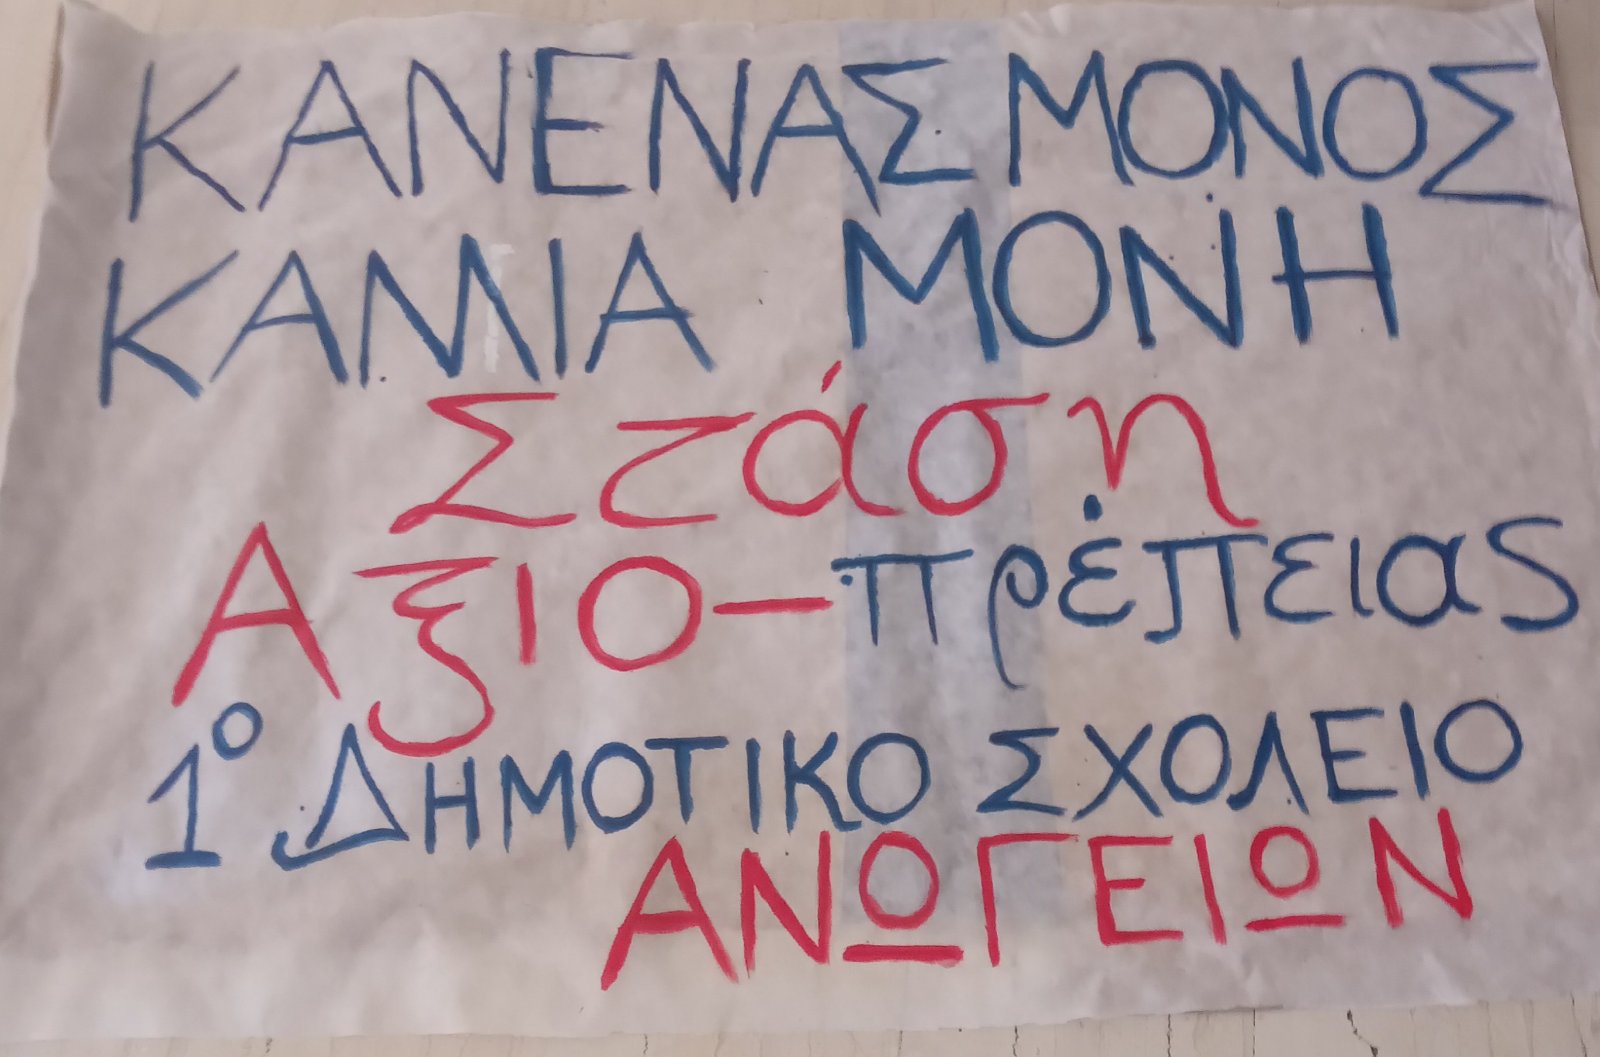 ΚΑΝΕΝΑΣ ΜΟΝΟΣ
ΚΑΜΙΑ ΜΟΝΗ
Στάση
Αξιο-πρέπειας
1ο ΔΗΜΟΤΙΚΟ ΣΧΟΛΕΙΟ
ΑΝΩΓΕΙΩΝ